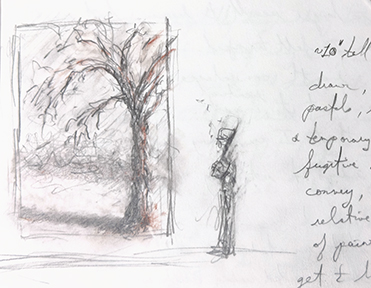 ~10" tall
drawn,
pastels,
& temporary
fugitive
convey,
relative
of pain
get & l